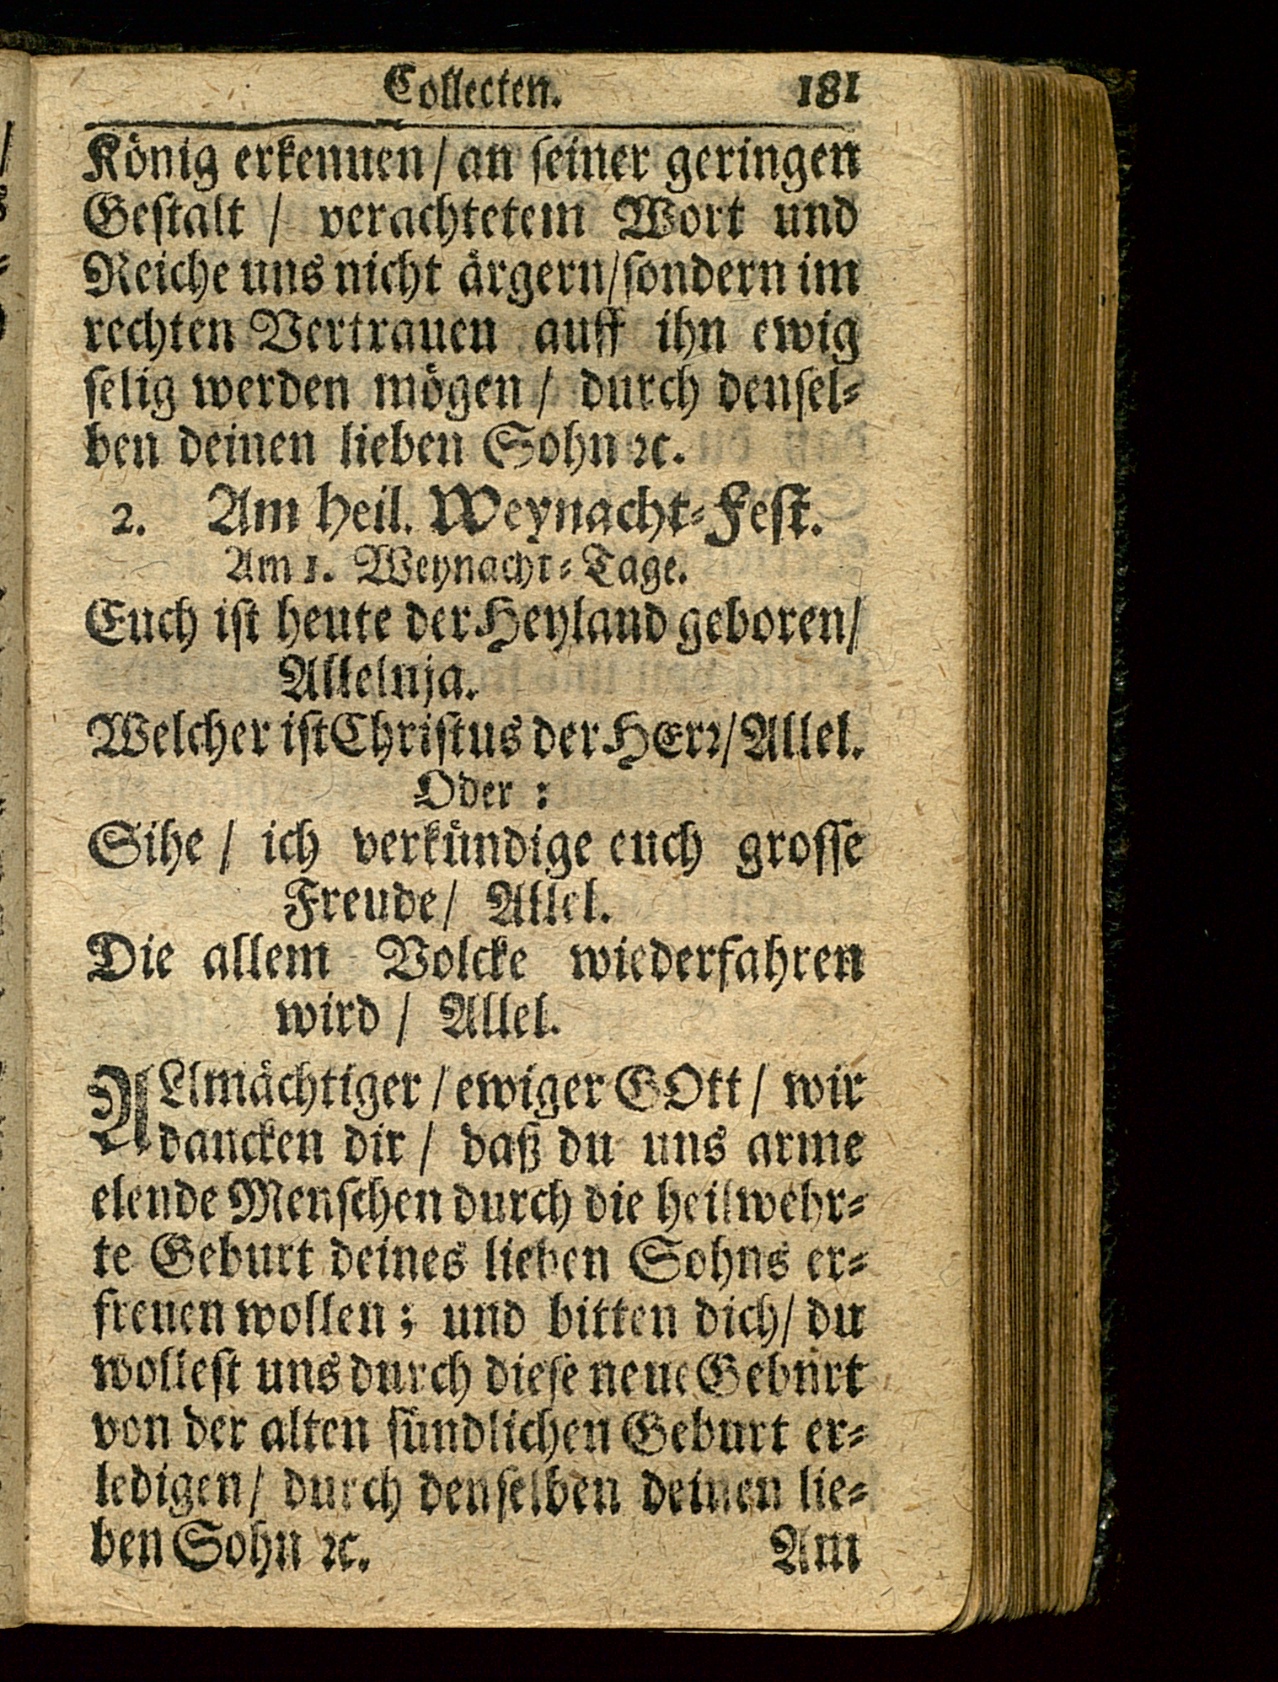 Collecten. 181
König erkennen / an seiner geringen
Gestalt / verachtetem Wort und
Reiche uns nicht ärgern / sondern im
rechten Vertrauen auff ihn ewig
selig werden mögen / durch densel-
ben deinen lieben Sohn ꝛc.
2. Am heil. Weynacht-Fest.
Am 1. Weynacht-Tage.
Euch ist heute der Heyland geboren /
Alleluja.
Welcher ist Christus der HErꝛ / Allel.
Oder :
Sihe / ich verkündige euch grosse
Freude / Allel.
Die allem Volcke wiederfahren
wird / Allel.
ALlmächtiger / ewiger GOtt / wir
dancken dir / daß du uns arme
elende Menschen durch die heilwehr-
te Geburt deines lieben Sohns er-
freuen wollen ; und bitten dich / du
wollest uns durch diese neue Geburt
von der alten sündlichen Geburt er-
ledigen / durch denselben deinen lie-
ben Sohn ꝛc. Am